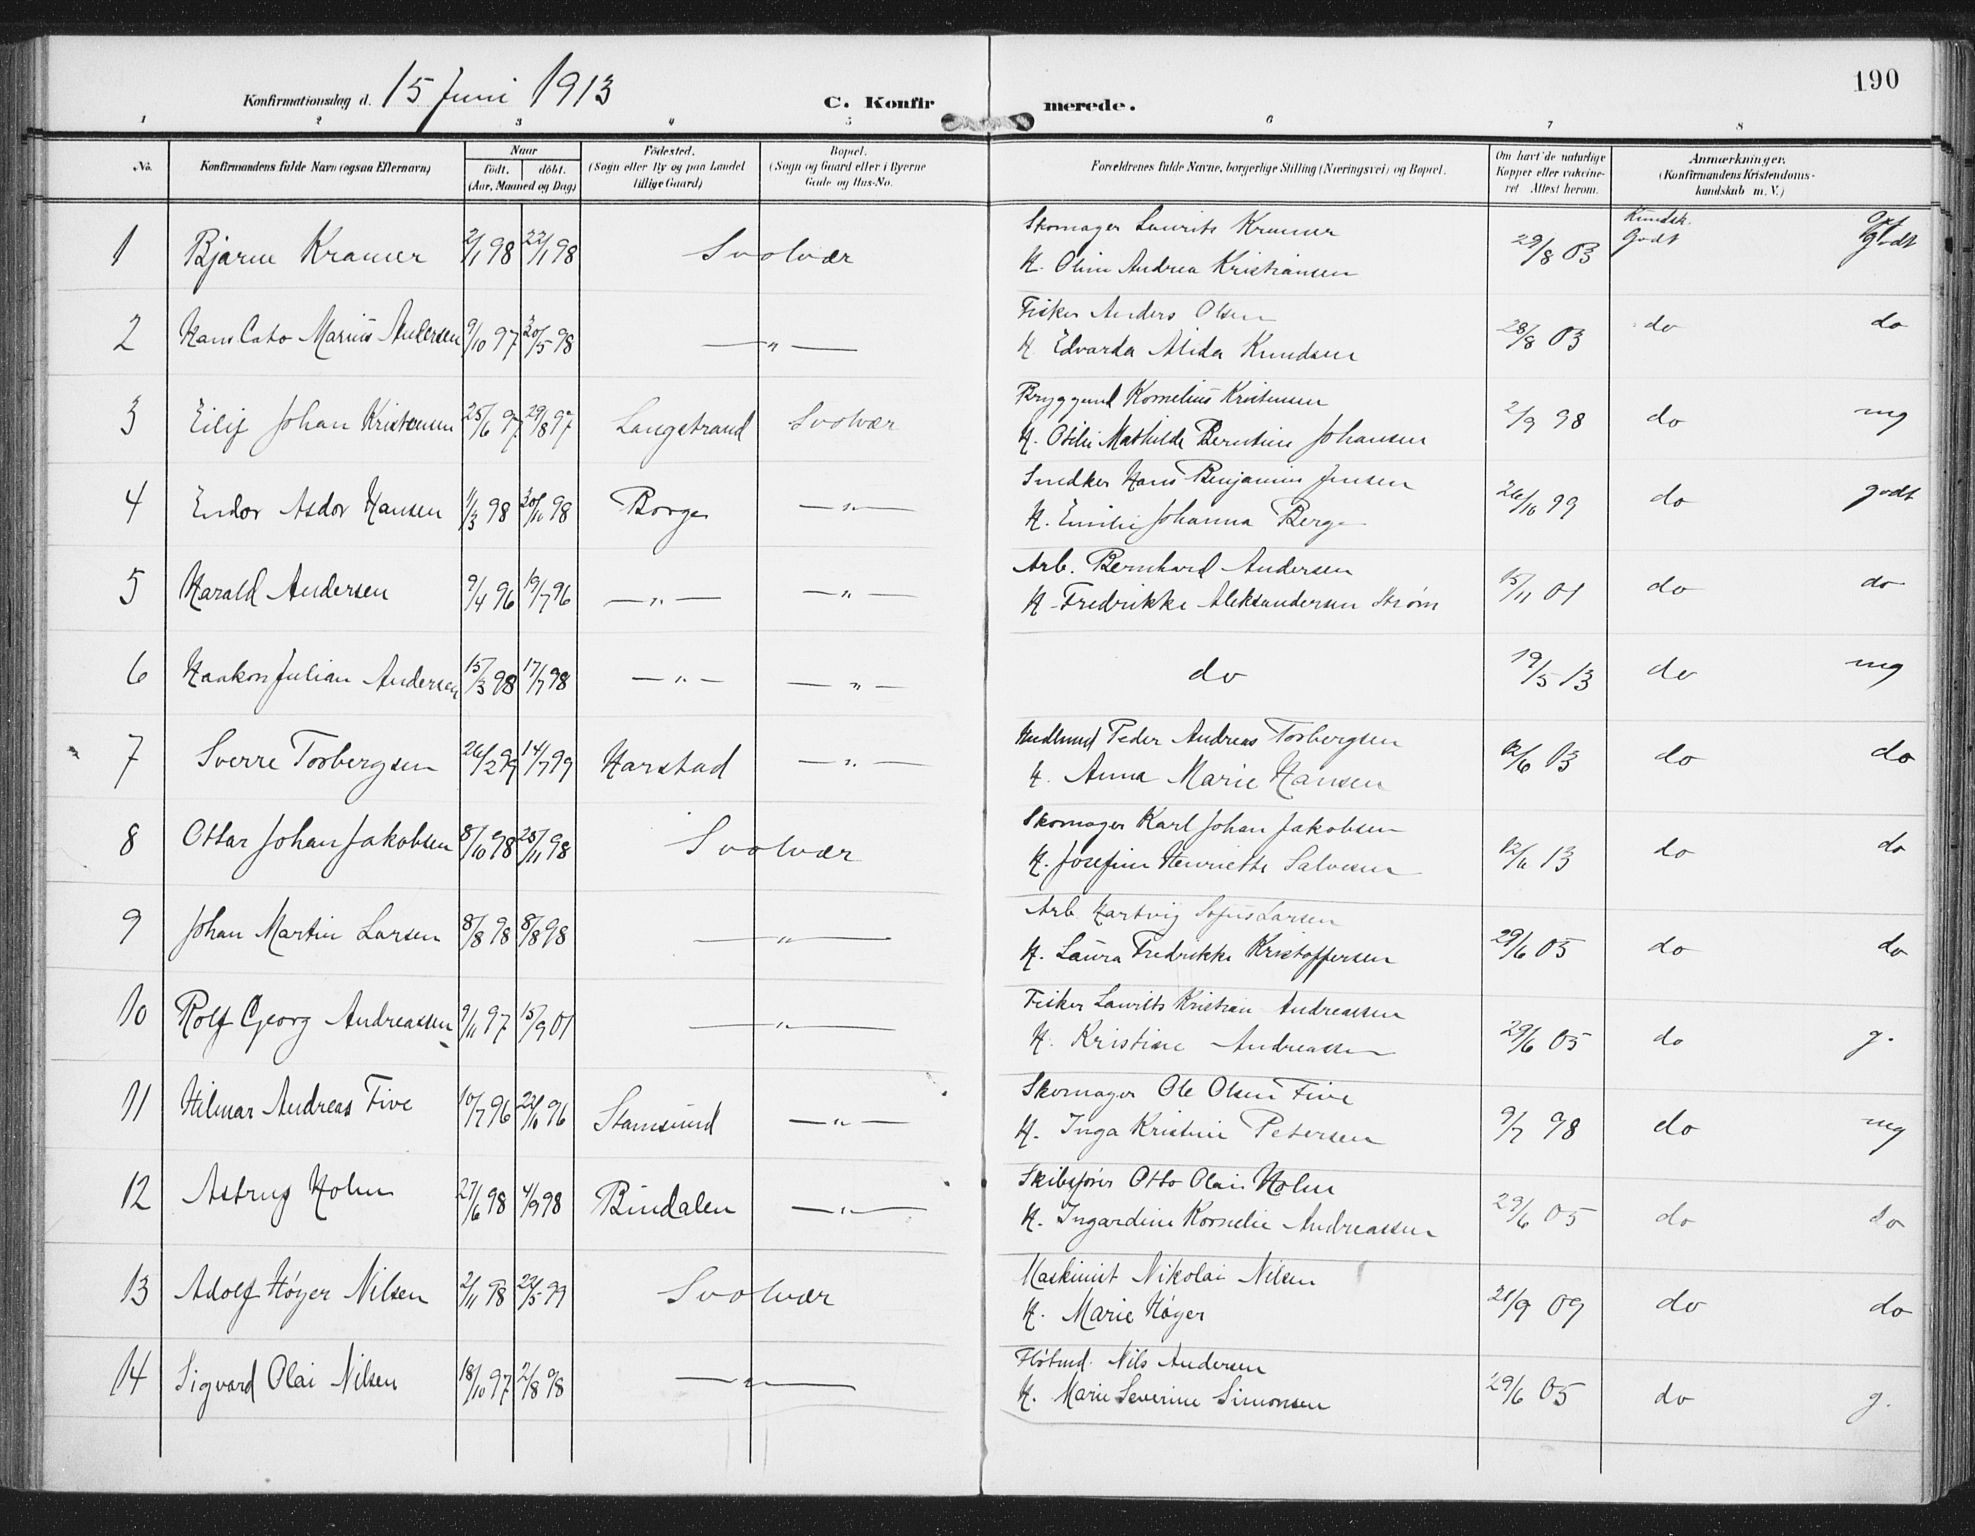 190
Konfirmationsdag d. 15 Juni 1913
C. Konfirmerede.
1 2 3 4 5 6 7 8
No.
Konfirmandens fulde Navn (ogsaa Efternavn)
Naar
født. døbt.
(Aar, Maaned og Dag)
Fødested.
(Sogn eller By og paa Landet
tillige Gaard)
Bopæl.
(Sogn og Gaard eller i Byerne
Gade og Hus-No.
Forældrenes fulde Navne, borgerlige Stilling (Næringsvei) og Bopæl.
Om havt de naturlige
Kopper eller vakcine-
ret Attest herom.
Anmærkninger.
(Konfirmandens Kristendoms-
kundskab m. V.)
Skomager Laurits Kramer Kundsk.
1 Bjarne Kramer 2/1 98 22/1 98 Svolvær 29/8 03 Godt Godt
H. Oline Andrea Kristiansen
Fisker Anders Olsen
2 Hans Cato Marius Andersen 9/10 97 30/5 98 —"— 28/8 03 do do
H. Edvarda Alida Knudsen
Bryggemd Kornelius Kristensen
3 Eilif Johan Kristensen 25/6 97 29/8 97 Langstrand Svolvær 2/9 98 do mg
H. Otilie Mathilde Berntine Johansen
Snedker Hans Benjamin Jensen
4 Endor Asdor Hansen 1/3 98 30/10 98 Borge —"— 26/10 99 do godt
H. Emilie Johanna Berge
Arb. Bernhard Andersen
5 Harald Andersen 9/4 96 19/7 96 —"— —"— 15/11 01 do do
H. Fredrikke Aleksandersen Strøm
6 Haakon Julian Andersen 15/3 98 17/7 98 —"— —"— do 19/5 13 do mg
Peder Andreas Torbergsen
7 Sverre Torbergsen 26/2 99 14/7 99 Harstad —"— 12/6 03 do do
H. Anna Marie Hansen
Skomager Karl Johan Jakobsen
8 Ottar Johan Jakobsen 8/10 98 25/11 98 Svolvær 12/6 13 do do
H. Josefine Henriette Salvesen
Arb. Hartvig Sofus Larsen
9 Johan Martin Larsen 8/8 98 8/8 98 —"— 29/6 05 do do
H. Laura Fredrikke Kristoffersen
Fisker Laurits Kristian Andreassen
10 Rolf Georg Andreassen 9/11 97 15/9 01 —"— 29/6 05 do g.
H. Kristine Andreassen
Skomager Ole Olsen Five
11 Hilmar Andreas Five 10/7 96 22/10 96 Stamsund —"— 9/7 98 do mg
H. Inga Kristine Petersen
Skibsfører Otto Olai Holm
12 Astrup Holm 27/6 98 4/9 98 Bindalen —"— 29/6 05 do do
H. Ingardine Kornelie Andreassen
Maskinist Nikolai Nilsen
13 Adolf Høyer Nilsen 2/11 98 22/5 99 Svolvær 21/9 09 do do
H. Marie Høyer
Nils Andersen
14 Sigvard Olai Nilsen 18/10 97 2/8 98 —"— 29/6 05 do g.
H. Marie Severine Simonsen